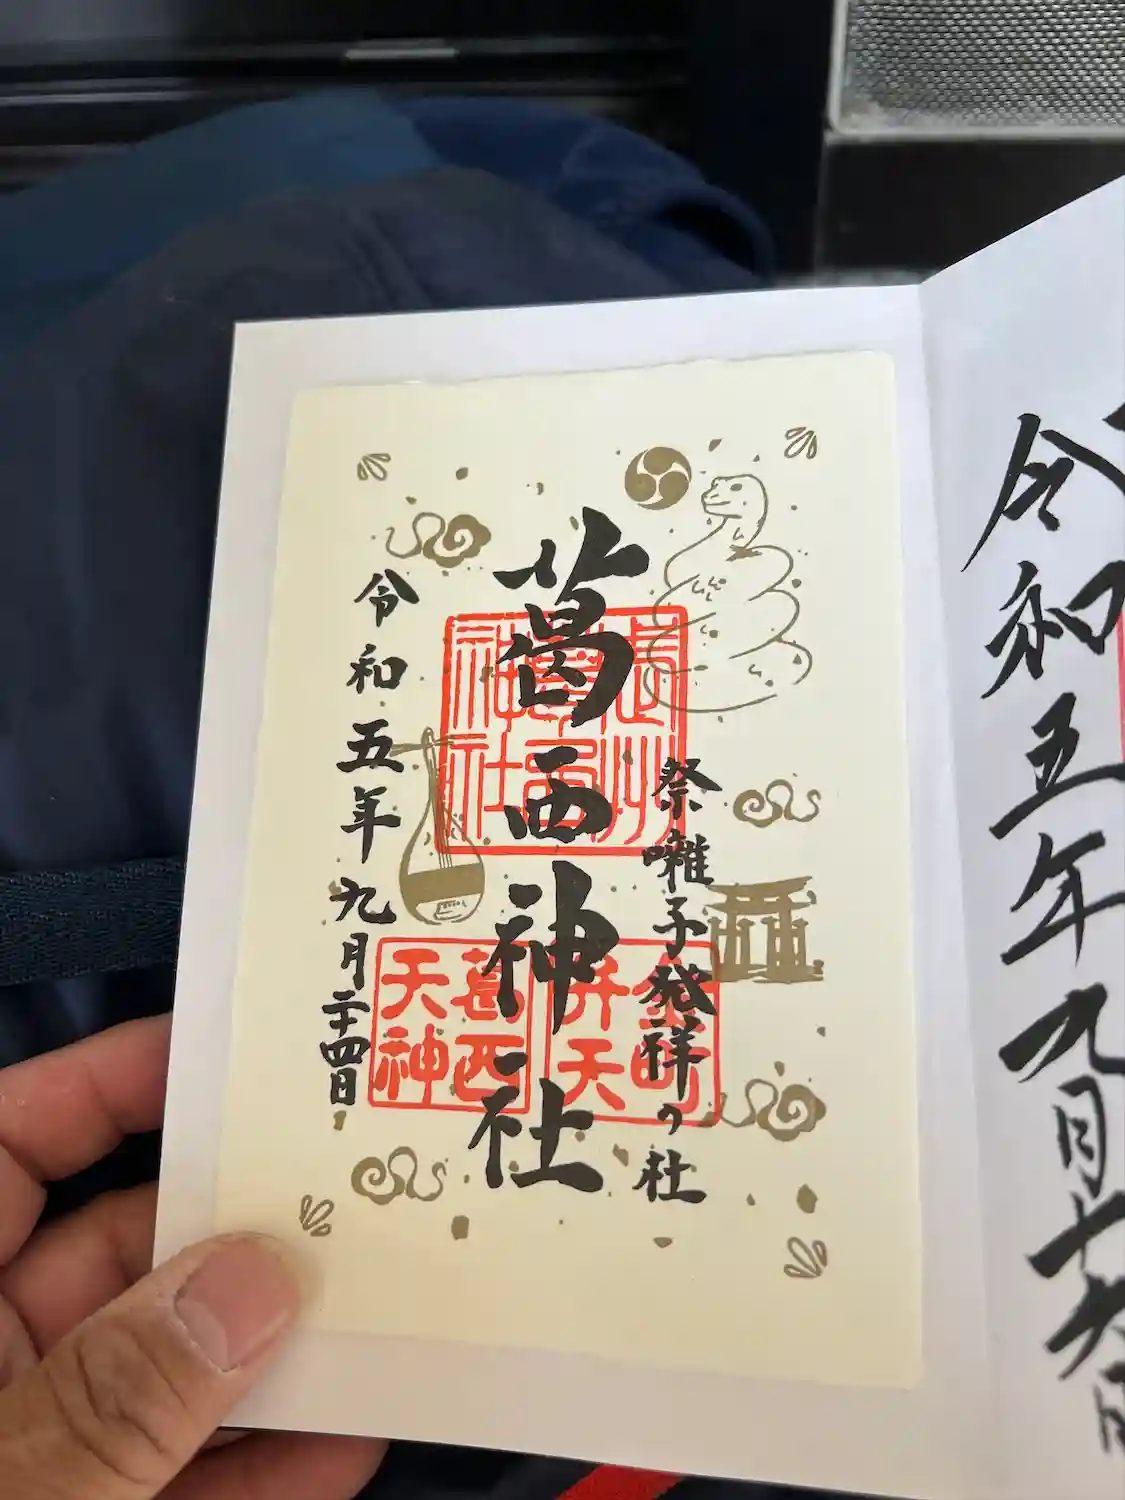 令和五年九月十六日
祭囃子発祥の社
葛西神社
武州
葛西
神社
金町
弁天
葛西
天神
令和五年九月二十四日